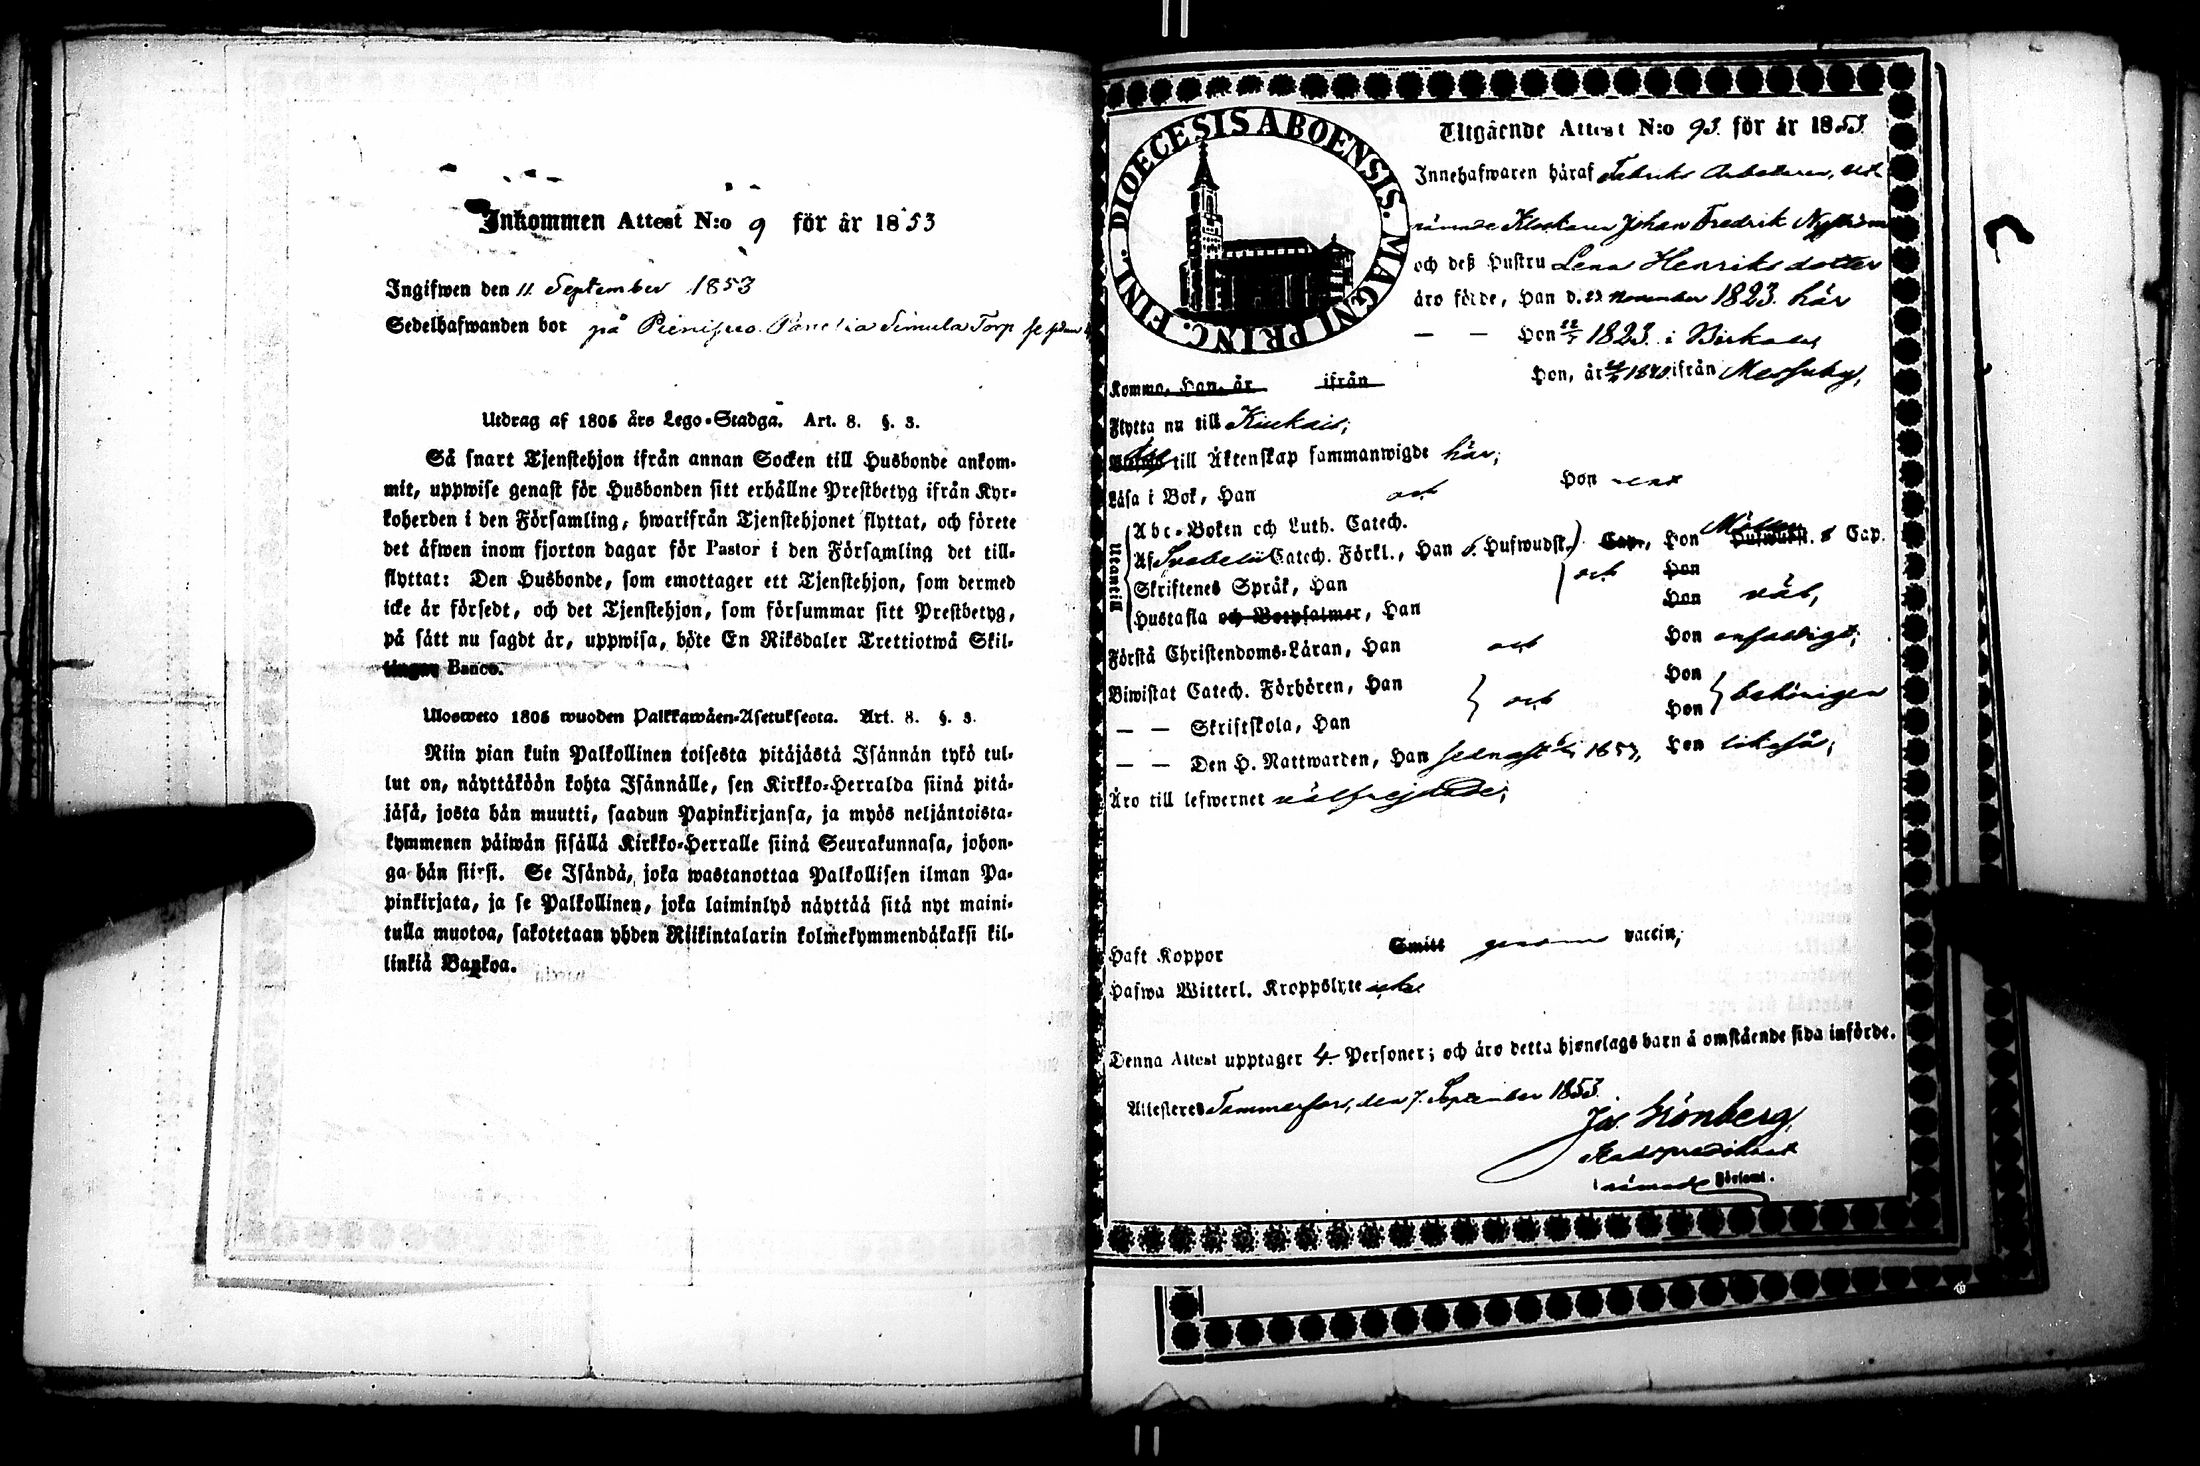 Inkommen Attest N:o 9 för år 1853
Ingifwen den 11 September 1853
Sedelhafwanden bor på Panelia Simula Torp
Utdrag af 1805 års Lego-Stadga. Art. 8. §. 3.
Så snart Tjenstehjon ifrån annan Socken till Husbonde ankom-
mit, uppwise genast för Husbonden sitt erhållne Prestbetyg ifrån Kyr-
koherden i den Församling, hwarifrån Tjenstehjonet flyttat, och förete
det äfwen inom fjorton dagar för Pastor i den Församling det till-
flyttat: Den Husbonde, som emottager ett Tjenstehjon, som dermed
icke är försedt, och det Tjenstehjon, som försummar sitt Prestbetyg,
på sätt nu sagdt är, uppwisa, böte En Riksdaler Trettiotwå Skil-
lingar Banco.
Ulosweto 1805 wuoden Palkkawäen-Asetuksesta. Art. 8. §. 3.
Niin pian kuin Palkollinen toisesta pitäjästä Isännän tykö tul-
lut on, näyttäköön kohta Isännälle, sen Kirkko-Herralda siinä pitä-
jäsä, josta hän muutti, saadun Papinkirjansa, ja myös neljäntoista-
kymmenen päiwän sisällä Kirkko-Herralle siinä Seurakunnasa, johon-
ga hän siirsi. Se Isändä, joka wastanottaa Palkollisen ilman Pa-
pinkirjata, ja se Palkollinen, joka laiminlyö näyttää sitä nyt maini-
tulla muotoa, sakotetaan yhden Riikintalarin kolmekymmendäkaksi kil-
linkiä Bankoa.
DIOECESIS ABOENSIS. MAGNI PRINC. FINL.
Utgående Attest N:o 93 för år 1853
Innehafwaren häraf Fabriks Arbetaren,
Klockaren Johan Fredrik Nyström
och deß Hustru Lena Henriksdotter
äro födde, Han d. 29 November 1823 här
— — Hon 1823 i Birkala,
Komma, Han, år ifrån Hon, år 1840 ifrån Messuby,
Flytta nu till Kiukais,
till Äktenskap sammanwigde här,
Läsa i Bok, Han och Hon
Utantill
Abc-Boken och Luth. Catech.
Af Svebelii Catech. Förkl., Han 5. Hufwudst. Cap., Hon Hufwudst. Cap.
Skriftenes Språk, Han och Hon
Hustafla och Botpsalmer, Han Hon väl,
Förstå Christendoms-Läran, Han och Hon enfaldigt,
Biwistat Catech. Förhören, Han och Hon behörigen
— — Skriftskola, Han Hon
— — Den H. Nattwarden, Han sednast 1853, Hon likaså,
Äro till lefwernet välfrejdade,
Haft Koppor Smitt genom vaccin,
Hafwa Witterl. Kroppslyte icke.
Denna Attest upptager 4 Personer; och äro detta hjonelags barn å omstående sida införde.
Attesteres Tammerfors, den 7 September 1853.
Jac. Grönberg,
Stadspredikant
Församl.